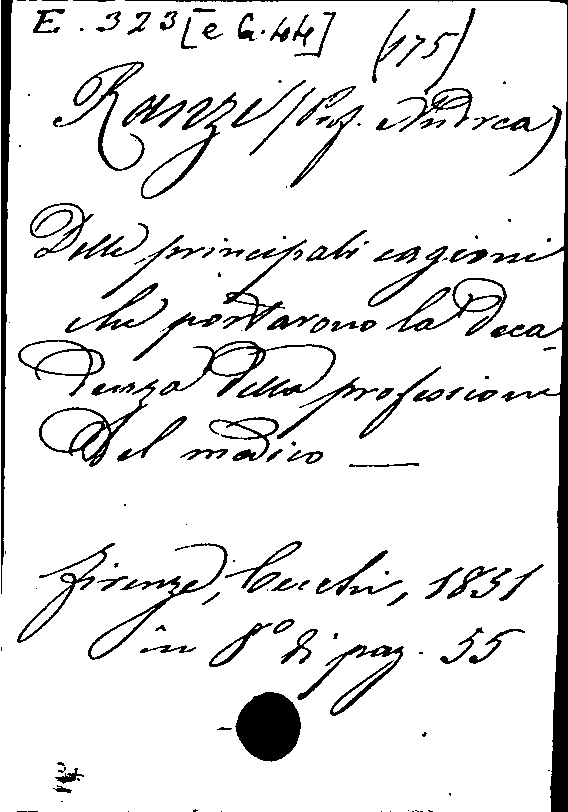 E. 323 [e G. 404] (175)
Ranzi (Prof. Andrea)
Delle principali cagioni
che portarono la deca-
denza della professione
del medico —
Firenze, Cecchi, 1851
in 8º di pag. 55